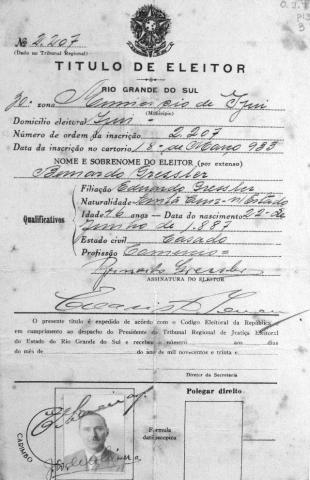 Nº 2.207
(Dado no Tribunal Regional)
TITULO DE ELEITOR
RIO GRANDE DO SUL
30ª zona Municipio de Ijui
(Municipio)
Domicilio eleitoral Ijui
Número de ordem da inscrição 2.207
Data da inscrição no cartorio 18 de Março 933
NOME E SOBRENOME DO ELEITOR (por extenso)
Bernardo Gressler
Qualificativos
Filiação Eduardo Gressler
Naturalidade Santa Cruz n/Estado
Idade 46 anos — Data do nascimento 22 de
Junho de 1.887
Estado civil Casado
Profissão Comercio
Bernardo Gressler
ASSINATURA DO ELEITOR
O presente título é expedido de acôrdo com o Codigo Eleitoral da República e
em cumprimento ao despacho do Presidente do Tribunal Regional de Justiça Eleitoral
do Estado do Rio Grande do Sul e recebeu o número aos dias
do mês de do ano de mil novecentos e trinta e
Director da Secretaria
Polegar direito
Formula
datiloscopica
CARIMBO